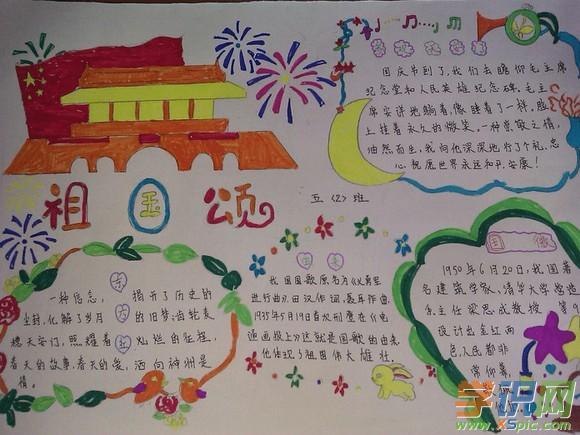 国庆节到了,我们去瞻仰毛主席
纪念堂和人民英雄纪念碑,毛主
席安详地躺着,像睡着了一样,脸
上挂着永久的微笑,一种崇敬之情,
油然而生,我向他深深地行了个礼,忠
心祝愿世界永远和平,安康!
祖国颂
五〈2〉班
东方红
一种信念, 揭开了历史的
尘封,化解了岁月 的旧梦;
穗天安门,照耀着 灿烂的征程,
春天的故事,春天的爱,洒向神州是
情。
国
我国国歌原名为《义勇军
进行曲》,田汉作词,聂耳作曲,
1935年5月19日首次
画投上为这就是国歌的由来
他体现了祖国伟大雄壮.
国徽
1950年6月20日,我国著
名建筑学家,清华大学
系主任梁思成教授 等9
设计出金红两
色,人民都非
常仰慕,
学识网
www.XSpic.com